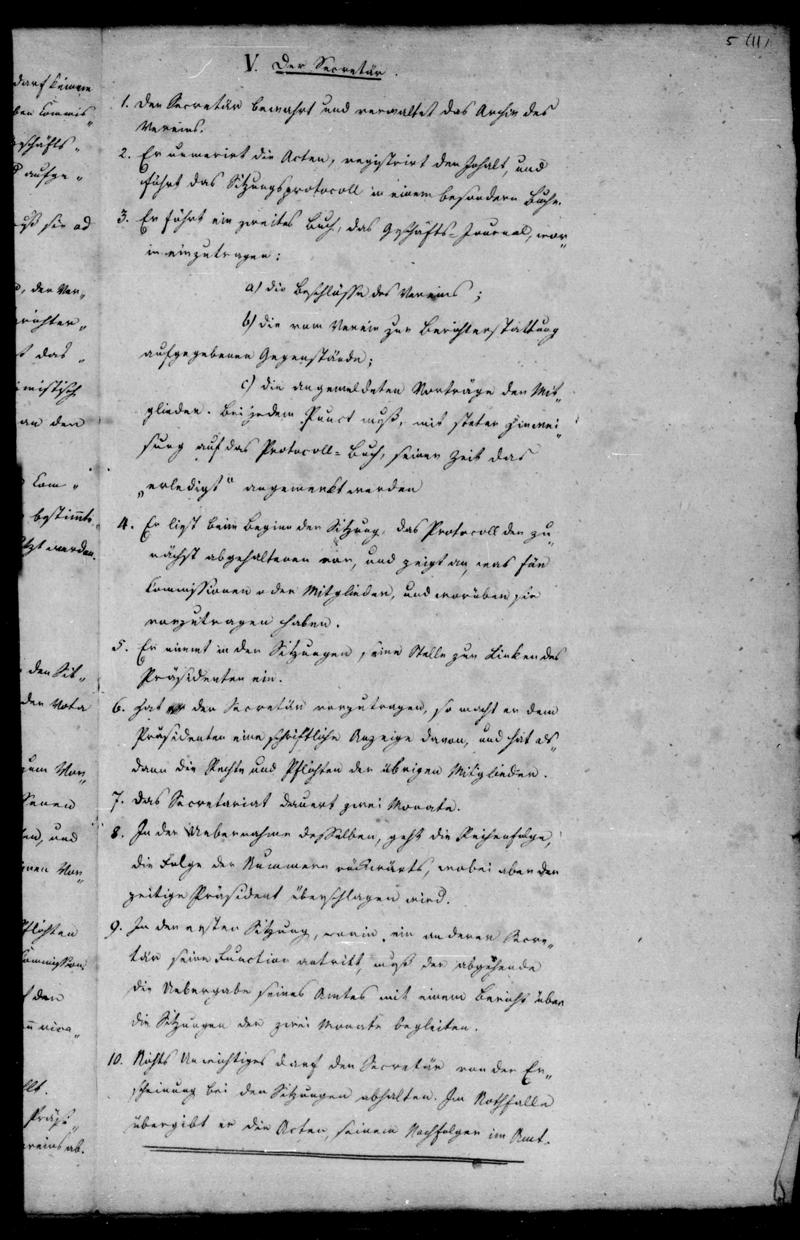 5 (11)
V. Der Secretär.
1. Der Secretär bewahrt und verwaltet das Archiv des
Vereins.
2. Er numerirt die Acten, registrirt den Inhalt, und
führt das Sitzungsprotocoll in einem besondern Buche.
3. Er führt ein zweites Buch, das Geschäfts-Journal, wor„
in einzutragen:
a) die Beschlüsse des Vereins;
b) die vom Verein zur Berichterstattung
aufgegebenen Gegenstände;
c) die angemeldeten Vorträge der Mit„
glieder. Bei jedem Punct muß, mit steter Hinwei„
sung auf das Protocoll-Buch, seiner Zeit das
„erledigt" angemerkt werden
4. Er liest beim Beginn der Sitzung, das Protocoll der zu„
nächst abgehaltenen vor, und zeigt an, was für
Commissionen oder Mitglieder, und worüber sie
vorzutragen haben.
5. Er nimmt in den Sitzungen seine Stelle zur Linken des
Präsidenten ein.
6. Hat der Secretär vorzutragen, so macht er dem
Präsidenten eine schriftliche Anzeige davon, und hat als„
dann die Rechte und Pflichten der übrigen Mitglieder.
7. Das Secretariat dauert zwei Monate.
8. In der Uebernahme desselben, geht die Reihenfolge,
die Folge der Nummern rückwärts, wobei aber der
zeitige Präsident überschlagen wird.
9. In der ersten Sitzung, worin ein anderer Secre„
tär seine Function antritt, muß der abgehende
die Uebergabe seines Amtes mit einem Bericht über
die Sitzungen der zwei Monate begleiten.
10. Nichts Unwichtiges darf den Secretär von der Er„
scheinung bei den Sitzungen abhalten. Im Nothfalle
übergibt er die Acten, seinem Nachfolger im Amt.
darf keinem
den Commis„
geschäfts„
aufge„
muß sie ad
der Ver„
das
an den
Com„
bestimmte
werden.
den Sit„
der Vota
Vor„
und
Vor„
Pflichten
Commission
den
Präsi„
Vereins ab.